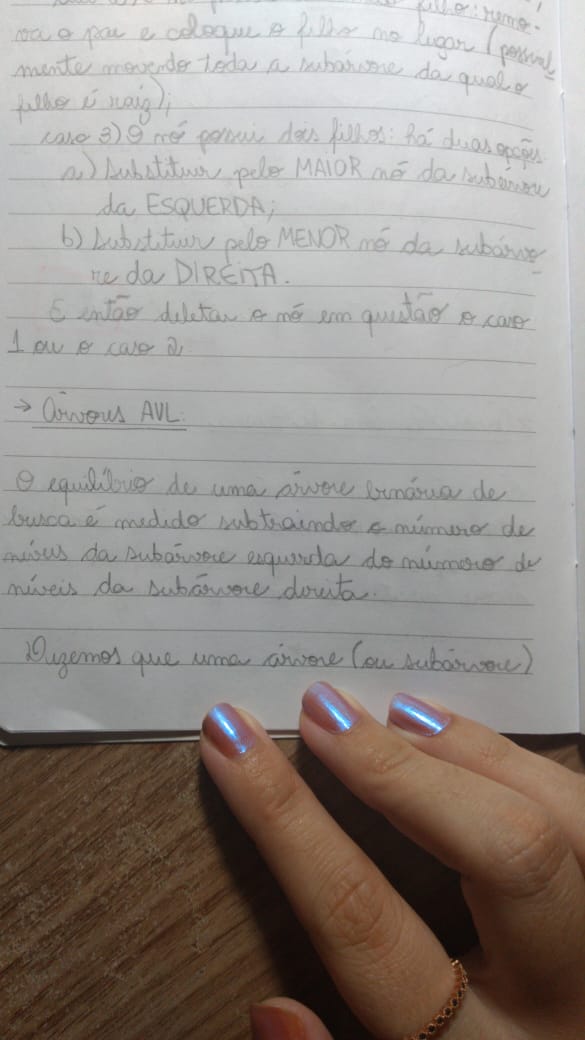 filho: remo-
va o pai e coloque o filho no lugar (possivel-
mente movendo toda a subárvore da qual o
filho é raiz);
caso 3) O nó possui dois filhos: há duas opções
a) Substituir pelo MAIOR nó da subárvore
da ESQUERDA;
b) Substituir pelo MENOR nó da subárvo-
re da DIREITA.
E então deletar o nó em questão o caso
1 ou o caso 2.
→ Árvores AVL:
O equilíbrio de uma árvore binária de
busca é medido subtraindo o número de
níveis da subárvore esquerda do número de
níveis da subárvore direita.
Dizemos que uma árvore (ou subárvore)